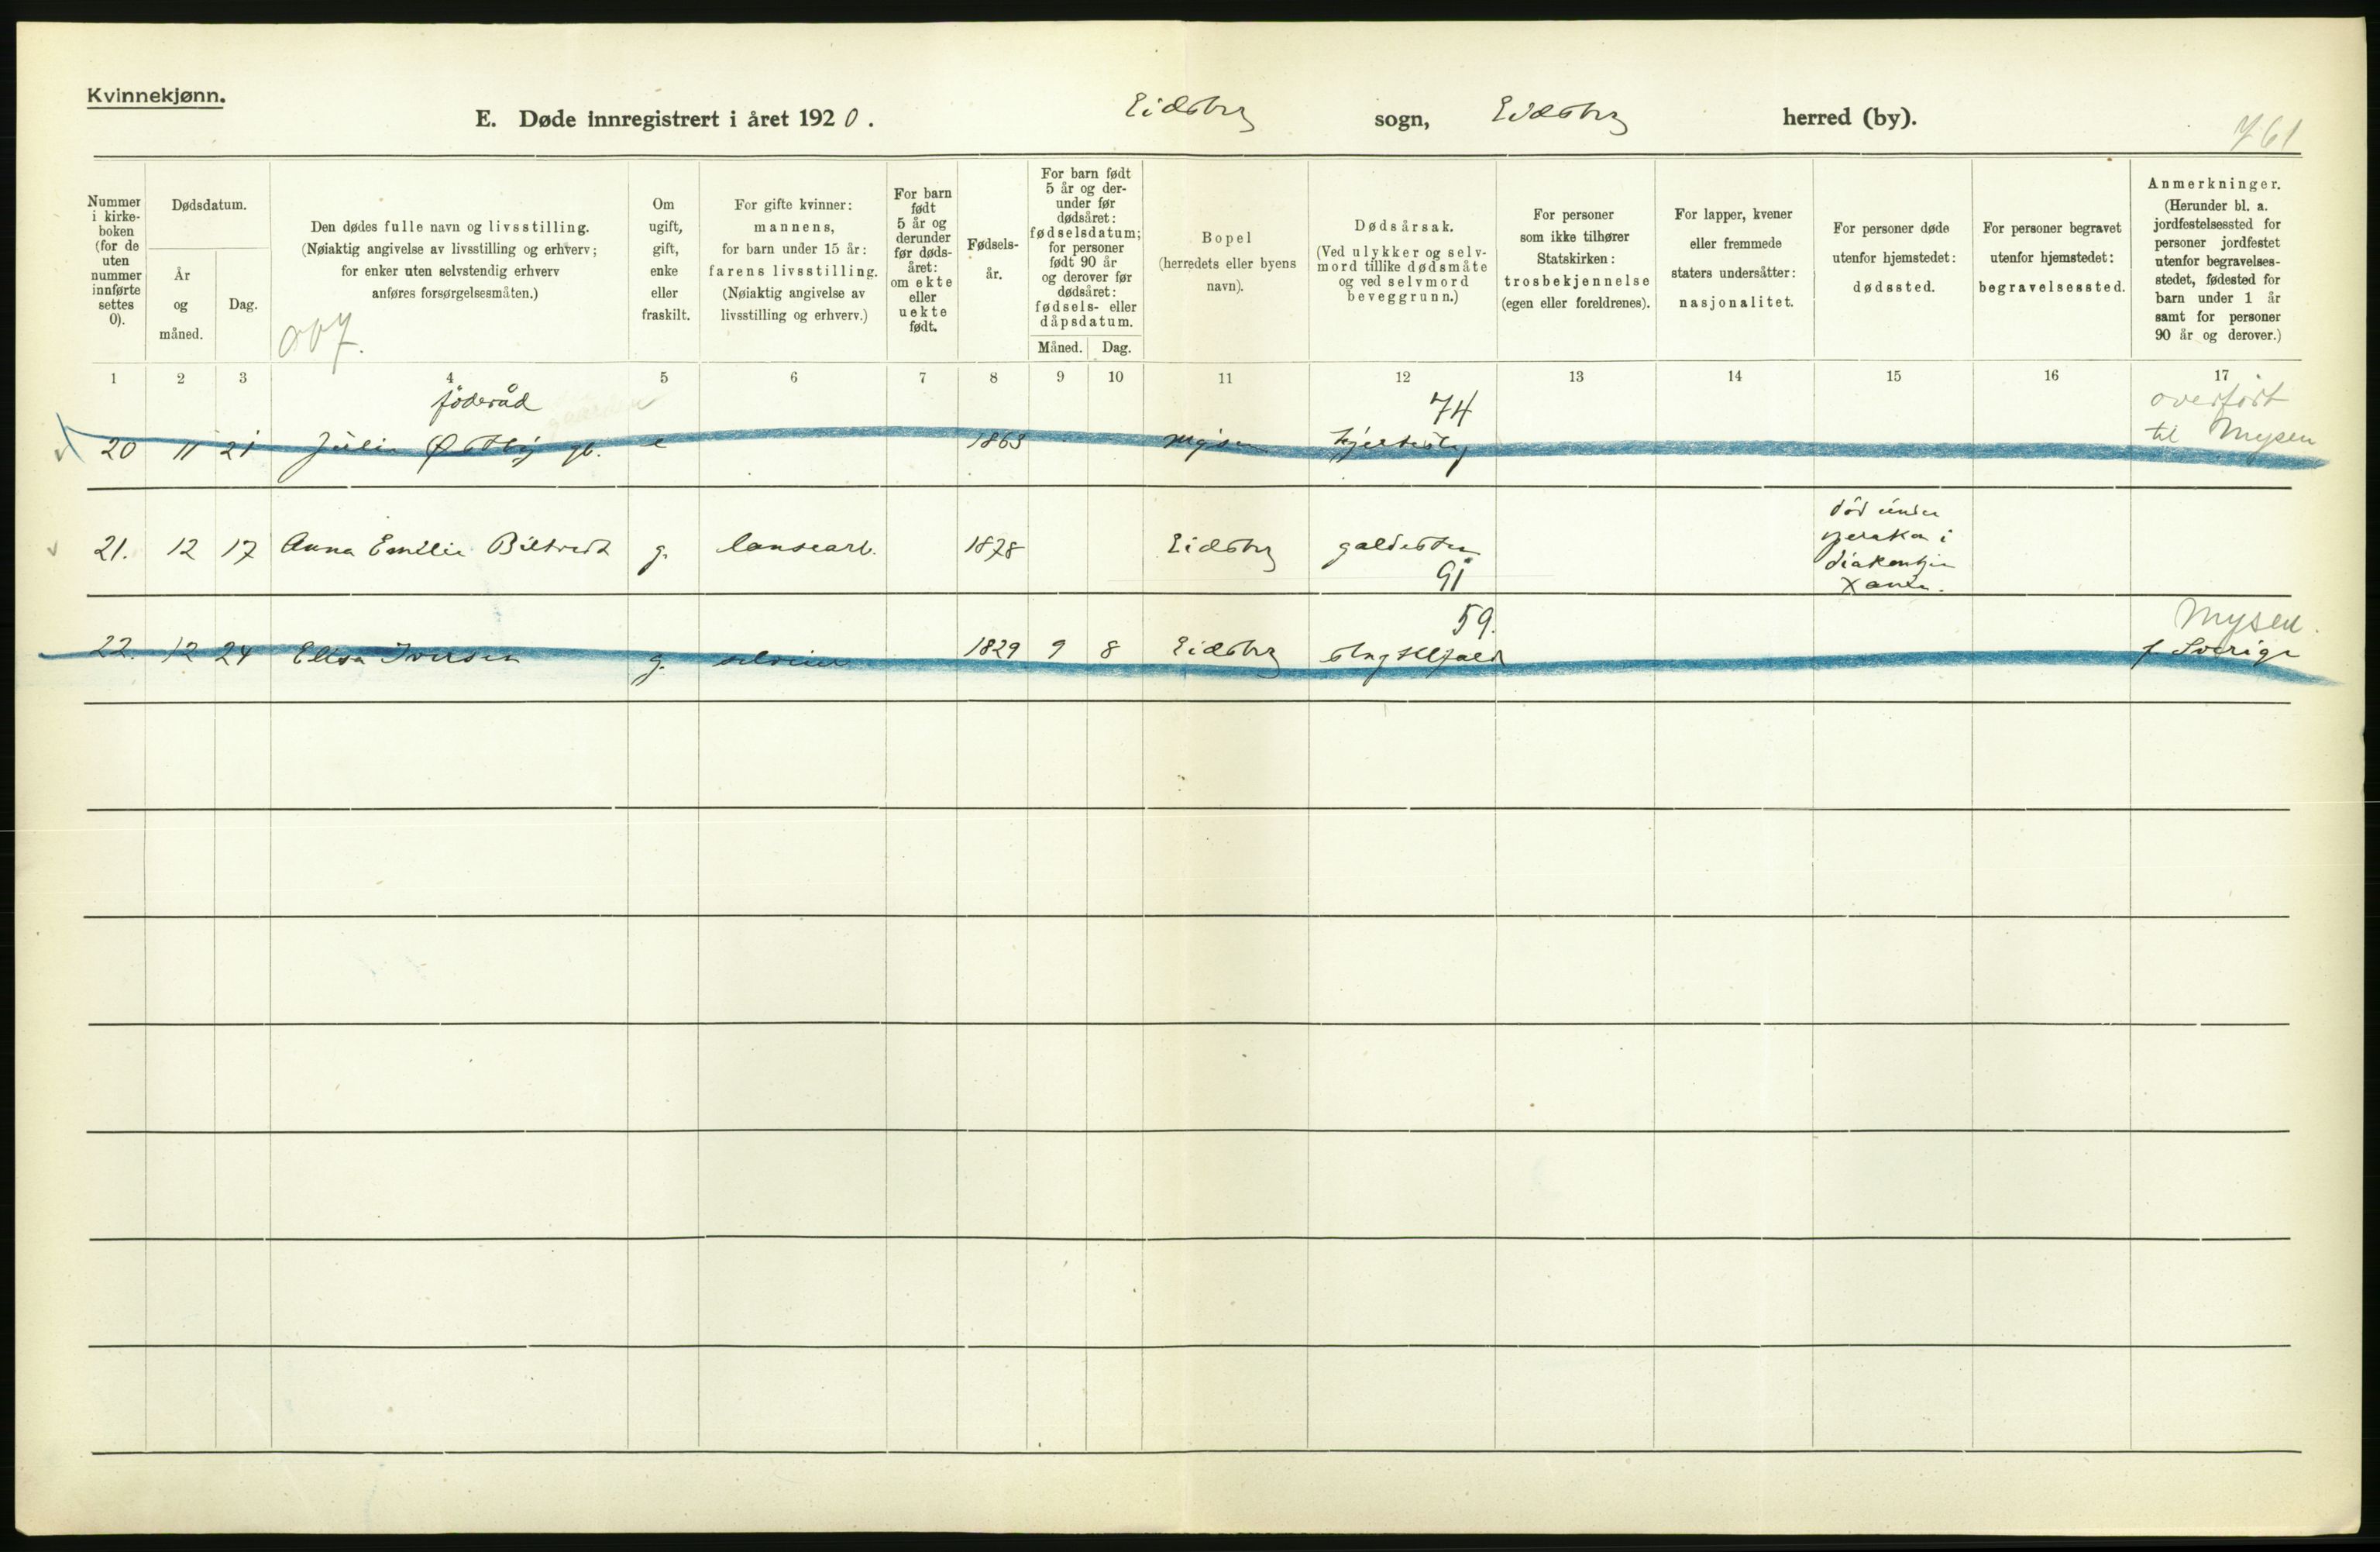 Kvinnekjønn.
E. Døde innregistrert i året 1920. Eidsberg sogn, Eidsberg herred (by).
761
Nummer i kirke-boken (for de uten nummer innførte settes 0).
Dødsdatum.
År og måned.
Dag.
Den dødes fulle navn og livsstilling.
(Nøiaktig angivelse av livsstilling og erhverv;
for enker uten selvstendig erhverv
anføres forsørgelsesmåten.)
Om
ugift,
gift,
enke
eller
fraskilt.
For gifte kvinner:
mannens,
for barn under 15 år:
farens livsstilling.
(Nøiaktig angivelse av
livsstilling og erhverv.)
For barn
født
5 år og
derunder
før døds-
året:
om ekte
eller
uekte
født.
Fødsels-
år.
For barn født
5 år og der-
under før
dødsåret:
fødselsdatum;
for personer
født 90 år
og derover før
dødsåret:
fødsels- eller
dåpsdatum.
Måned. Dag.
Bopel
(herredets eller byens
navn).
Dødsårsak.
(Ved ulykker og selv-
mord tillike dødsmåte
og ved selvmord
beveggrunn.)
For personer
som ikke tilhører
Statskirken:
trosbekjennelse
(egen eller foreldrenes).
For lapper, kvener
eller fremmede
staters undersåtter:
nasjonalitet.
For personer døde
utenfor hjemstedet:
dødssted.
For personer begravet
utenfor hjemstedet:
begravelsessted.
Anmerkninger.
(Herunder bl. a.
jordfestelsessted for
personer jordfestet
utenfor begravelses-
stedet, fødested for
barn under 1 år
samt for personer
90 år og derover.)
1 2 3 4 5 6 7 8 9 10 11 12 13 14 15 16 17
føderåd
74
overført
til Mysen
20 11 21 Julie Østby gb. e 1863 Mysen
21. 12 17 Anna Emilie g. 1878 Eidsberg galdesten
91
død under
i
diakonhj
X ania.
59.
Mysen.
22. 12 24 Elisa Iversen g. 1829 9 8 Eidsberg f Sverige